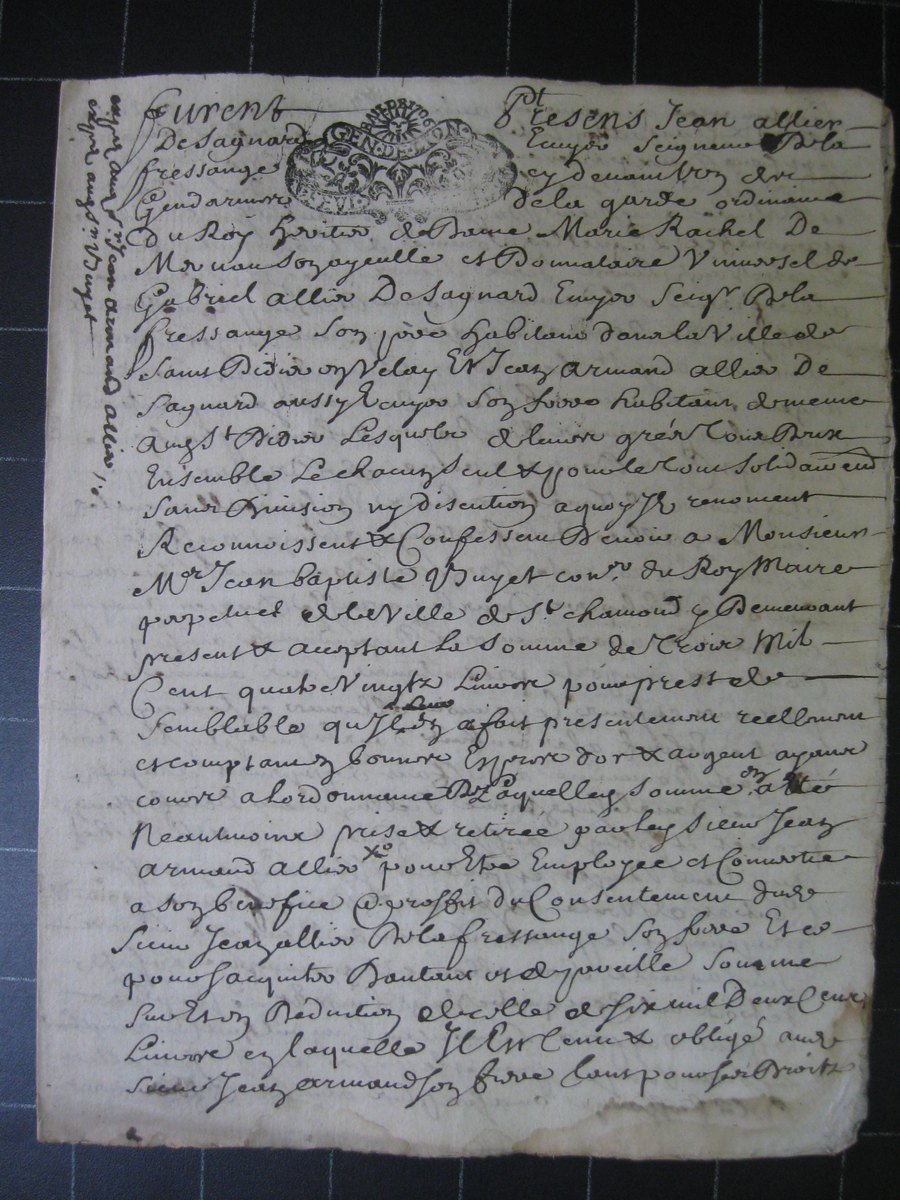 furent presens Jean allier
DeSagnard Ecuyer Seigneur De la
fressange cy devant Un des
Gendarmes de la garde ordinaire
Du Roy heritier de Dame Marie Rachel De
son ayeulle et Donnataire Universel de
Gabriel allier DeSagnard Ecuyer Seigr. De la
fressange son pere habitans dans la Ville de
Saint Didier en Velay Et Jean Armand allier De
Sagnard aussy Ecuyer son frere habitant de meme
aud St Didier Lesquels de leurs grés Tous Deux
Ensemble Le chacun seul & pour le Tout solidairemt
sans Division ny discution a quoy Ils renoncent
Reconnoissent & Confessent Devoir a Monsieur
Mer Jean baptiste Buyet coner du Roy Maire
perpetuel de la Ville de St chamond y Demeurant
present & acceptant La somme de Trois Mil
Cent quatre Vingtz Livres pour prest de
semblable qu'Il leur en a fait presentement reellement
et comptant en bonnes Especes d'or & argent ayant
cours a Lordonnance De Laquelle somme a eté
Neantmoins prise & retirée par led sieur Jean
armand allier pour Etre Employée et Convertie
a son benefice & proffit du Consentement dud
sieur Jean allier De la fressange son frere Et ce
pour sacquitter Dautant et de pareille somme
sur Et en Deduction de celle de six mil Deux Cent
Livres en laquelle Il Est Tenu & obligé aud
sieur Jean armand son frere tant pour ses Droits
expié aud sr. Jean armand allier
expié aud sr. Buyet
GEN. DE LYON